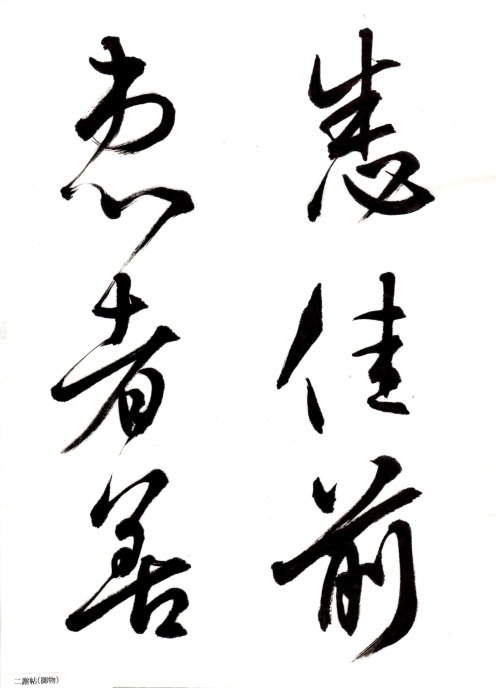 悉佳前
患者善
二謝帖(御物)